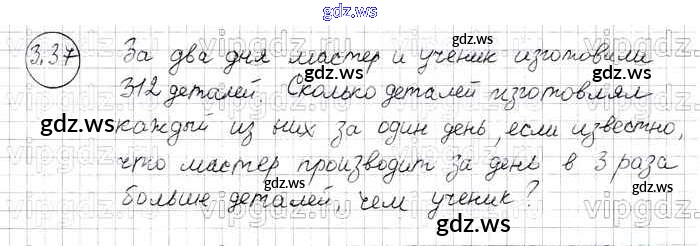 gdz.ws
3.37 За два дня мастер и ученик изготовили
312 деталей. Сколько деталей изготовлял
каждый из них за один день, если известно,
что мастер производит за день в 3 раза
больше деталей, чем ученик?
gdz.ws
gdz.ws
gdz.ws
gdz.ws
gdz.ws
gdz.ws
gdz.ws